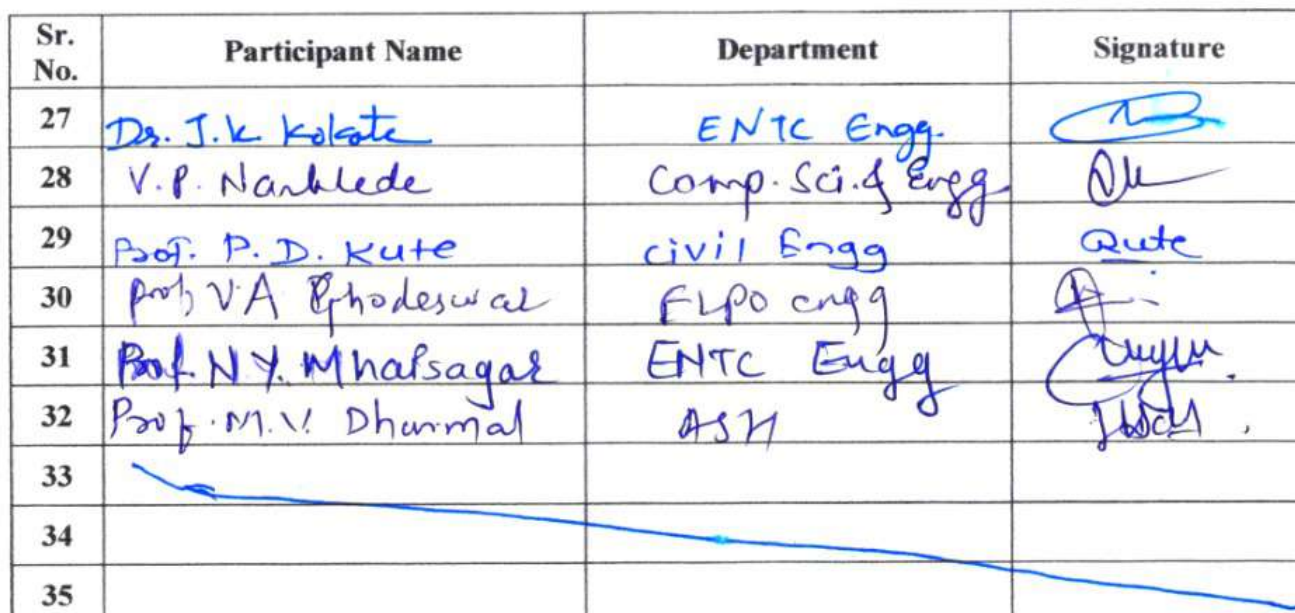 Sr. No. Participant Name Department Signature
27 Dr. J.K Kokate ENTC Engg.
28 V.P. Narkhede Comp. Sci. & Engg
29 Prof. P. D. Kute civil Engg Qute
30 Prof. V.A Ghodeswar engg
31 Prof. N.Y. Mhaisagar ENTC Engg
32 Prof. M.V. Dharmal ASH
33
34
35